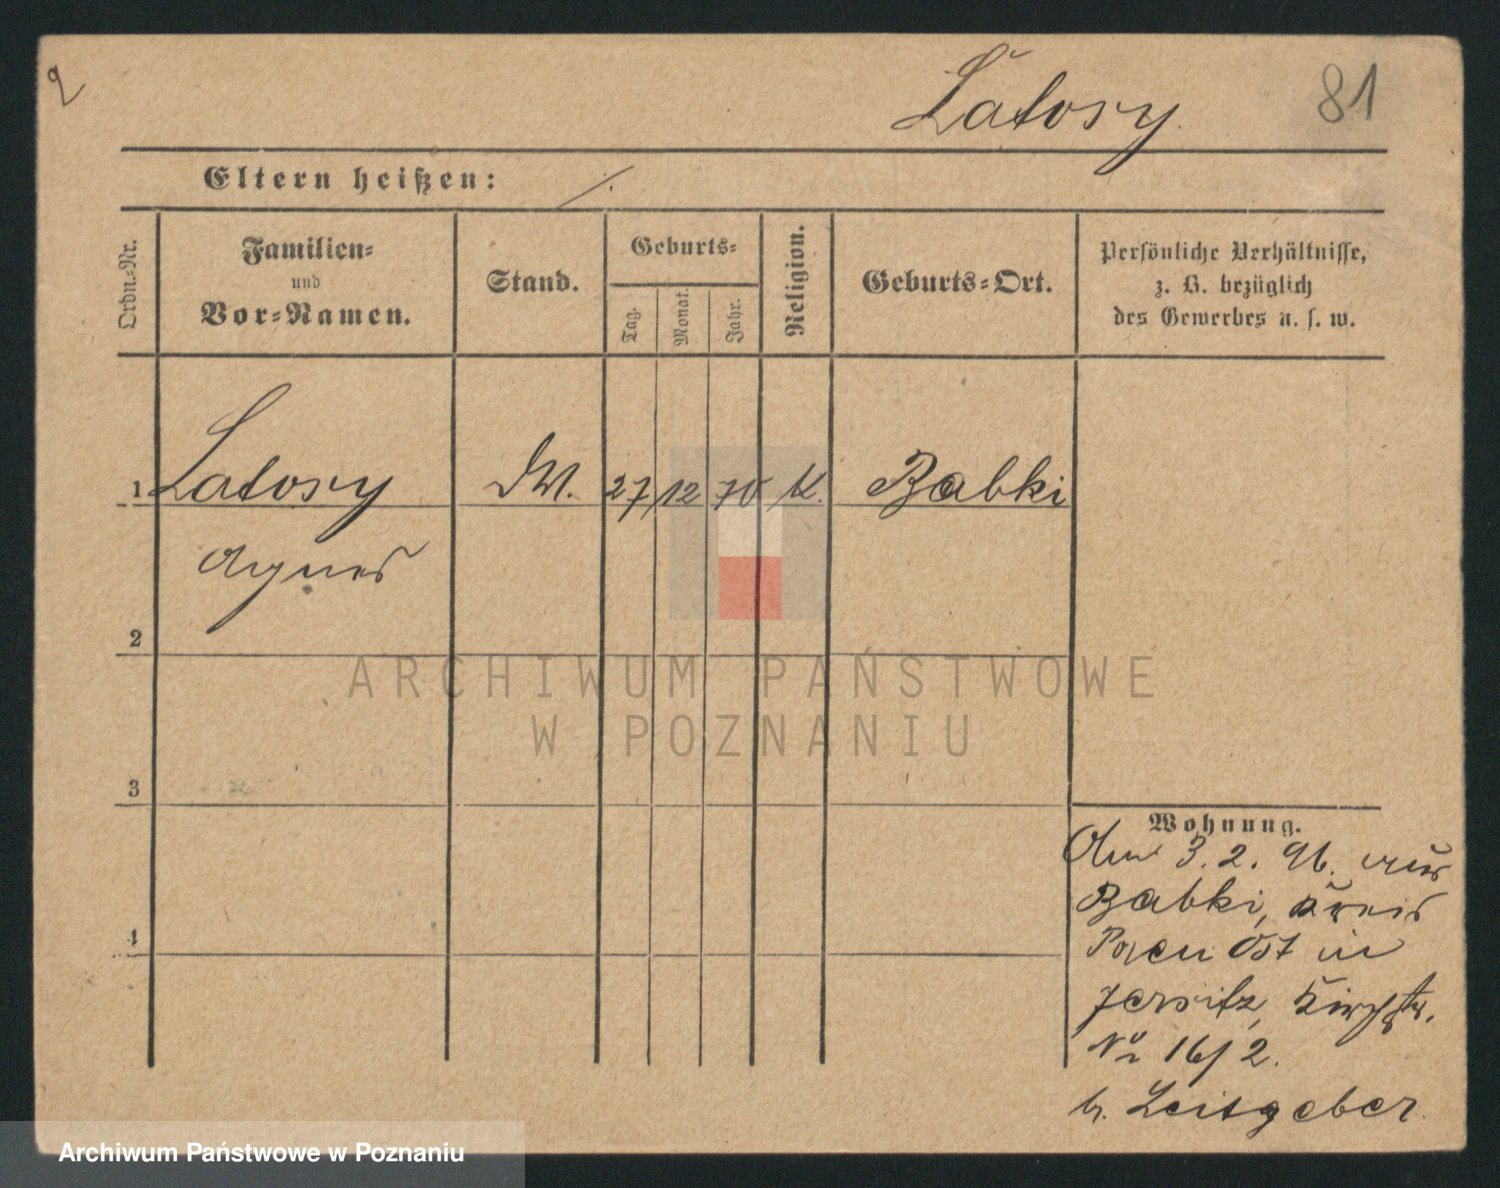 2
Latosy
81
Eltern heißen: /.
Ordn.-Nr.
Familien-
und
Vor-Namen.
Stand.
Geburts-
Tag.
Monat.
Jahr.
Religion.
Geburts-Ort.
Persönliche Verhältnisse,
z. B. bezüglich
des Gewerbes u. s. w.
1 Latosy 27 12 70 K. Babki
Agnes
2
3
4
Wohnung.
Am 3. 2. 96. aus
Babki, Kreis
Posen Ost in
Jersitz, Kirchstr.
No 16/2.
b. Leitgeber
ARCHIWUM PAŃSTWOWE
W POZNANIU
Archiwum Państwowe w Poznaniu